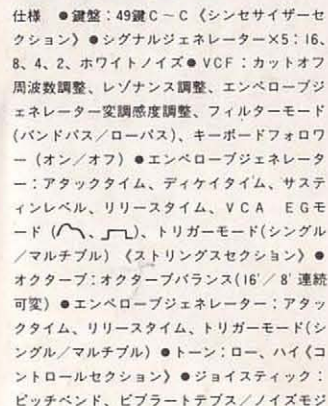 仕様 ●鍵盤：49鍵C～C《シンセサイザーセ
クション》●シグナルジェネレーター×5：16、
8、4、2、ホワイトノイズ●VCF：カットオフ
周波数調整、レゾナンス調整、エンベロープジ
ェネレーター変調感度調整、フィルターモード
(バンドパス／ローパス)、キーボードフォロワ
ー (オン／オフ) ●エンベロープジェネレータ
ー：アタックタイム、ディケイタイム、サステ
ィンレベル、リリースタイム、VCA EGモ
ード (、)、トリガーモード(シングル
／マルチプル)《ストリングスセクション》●
オクターブ：オクターブバランス(16′／8′連続
可変) ●エンベロープジェネレーター：アタッ
クタイム、リリースタイム、トリガーモード(シ
ングル／マルチプル) ●トーン：ロー、ハイ《コ
ントロールセクション》●ジョイスティック：
ピッチベンド、ビブラートデプス／ノイズモジ